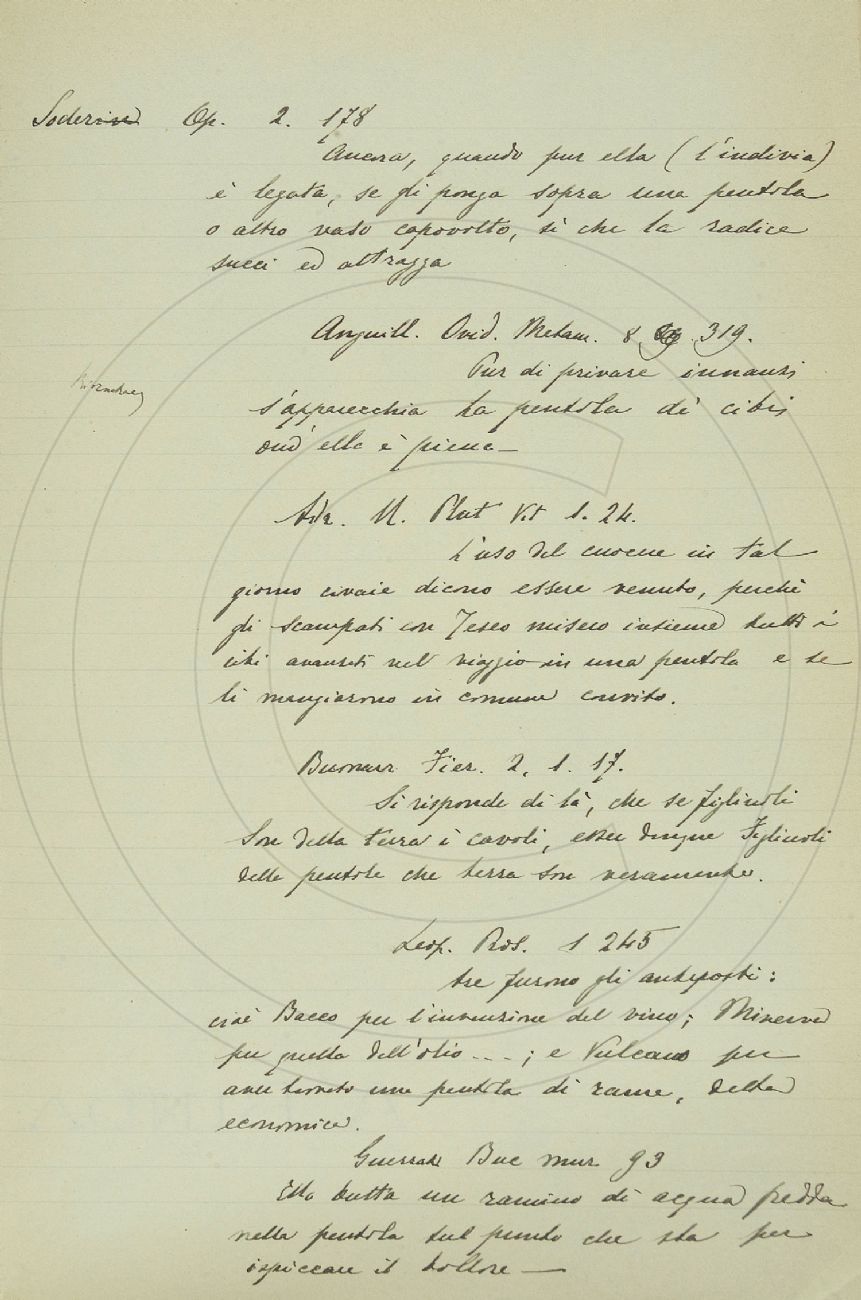 Soderini Op. 2. 178
Ancora, quando pur ella (l'indivia)
è legata, se gli ponga sopra una pentola
o altro vaso capovolto, sì che la radice
succi ed attragga
Anguill. Ovid. Metam. 8. 319.
Pur di privare innanzi
s'apparecchia La pentola di cibi
ond'ella è piena —
Adr. M. Plut Vit 1. 24.
L'uso del cuocere in tal
giorno civaie dicono essere venuto, perchè
gli scampati con Teseo misero insieme tutti i
cibi avanzati nel viaggio in una pentola e se
li mangiarono in comune convito.
Buonarr Fier. 2. 1. 17.
Si risponde di là, che se figliuoli
Son della terra i cavoli, esser dunque Figliuoli
delle pentole che terra son veramente.
Leop. Pros. 1 245
tre furono gli anteposti:
cioè Bacco per l'invenzione del vino; Minerva
per quella dell'olio ...; e Vulcano per
aver trovato una pentola di rame, detta
economica.
Guerraz Buc mur 93
Ella butta un ramino di acqua fredda
nella pentola sul punto che sta per
ispiccare il bollore —